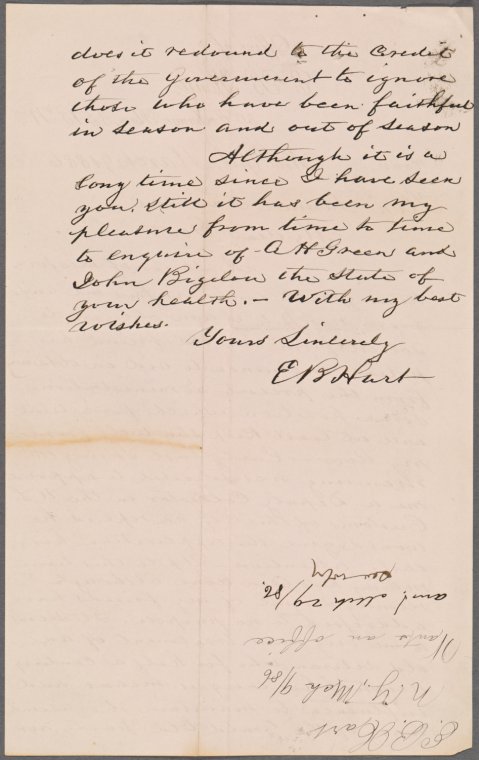 does it redound to the credit
of the Government to ignore
those who have been faithful
in season and out of season
Although it is a
long time since I have seen
you. Still it has been my
pleasure from time to time
to enquire of A H Green and
John Bigelow the state of
your health. — With my best
wishes.
Yours Sincerely
E B Hart
E. B. Hart
N. Y. Mch 9/86
Wants an office
ansd. Mch 29/86.